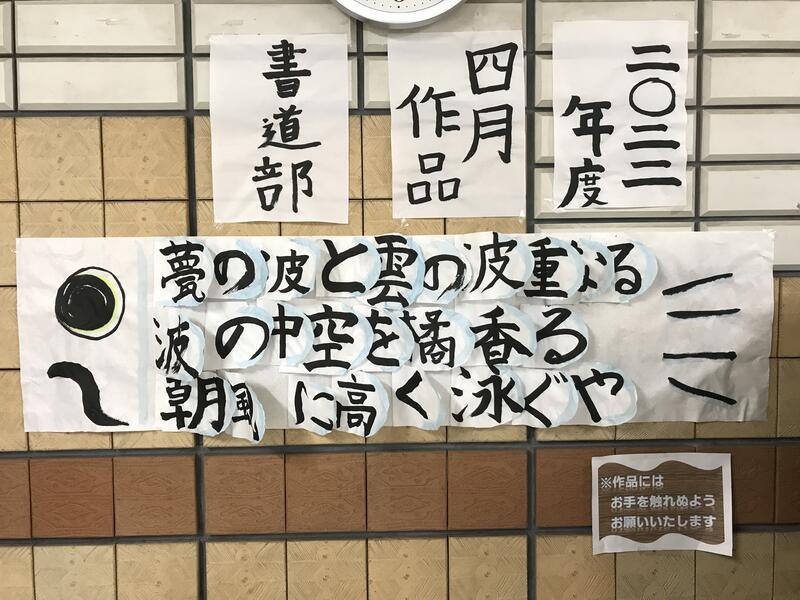 二〇二二
年度
四月
作品
書道部
甍の波と雲の波重なる
波の中空を橘香る
朝風に高く泳ぐや
※作品には
お手を触れぬよう
お願いいたします